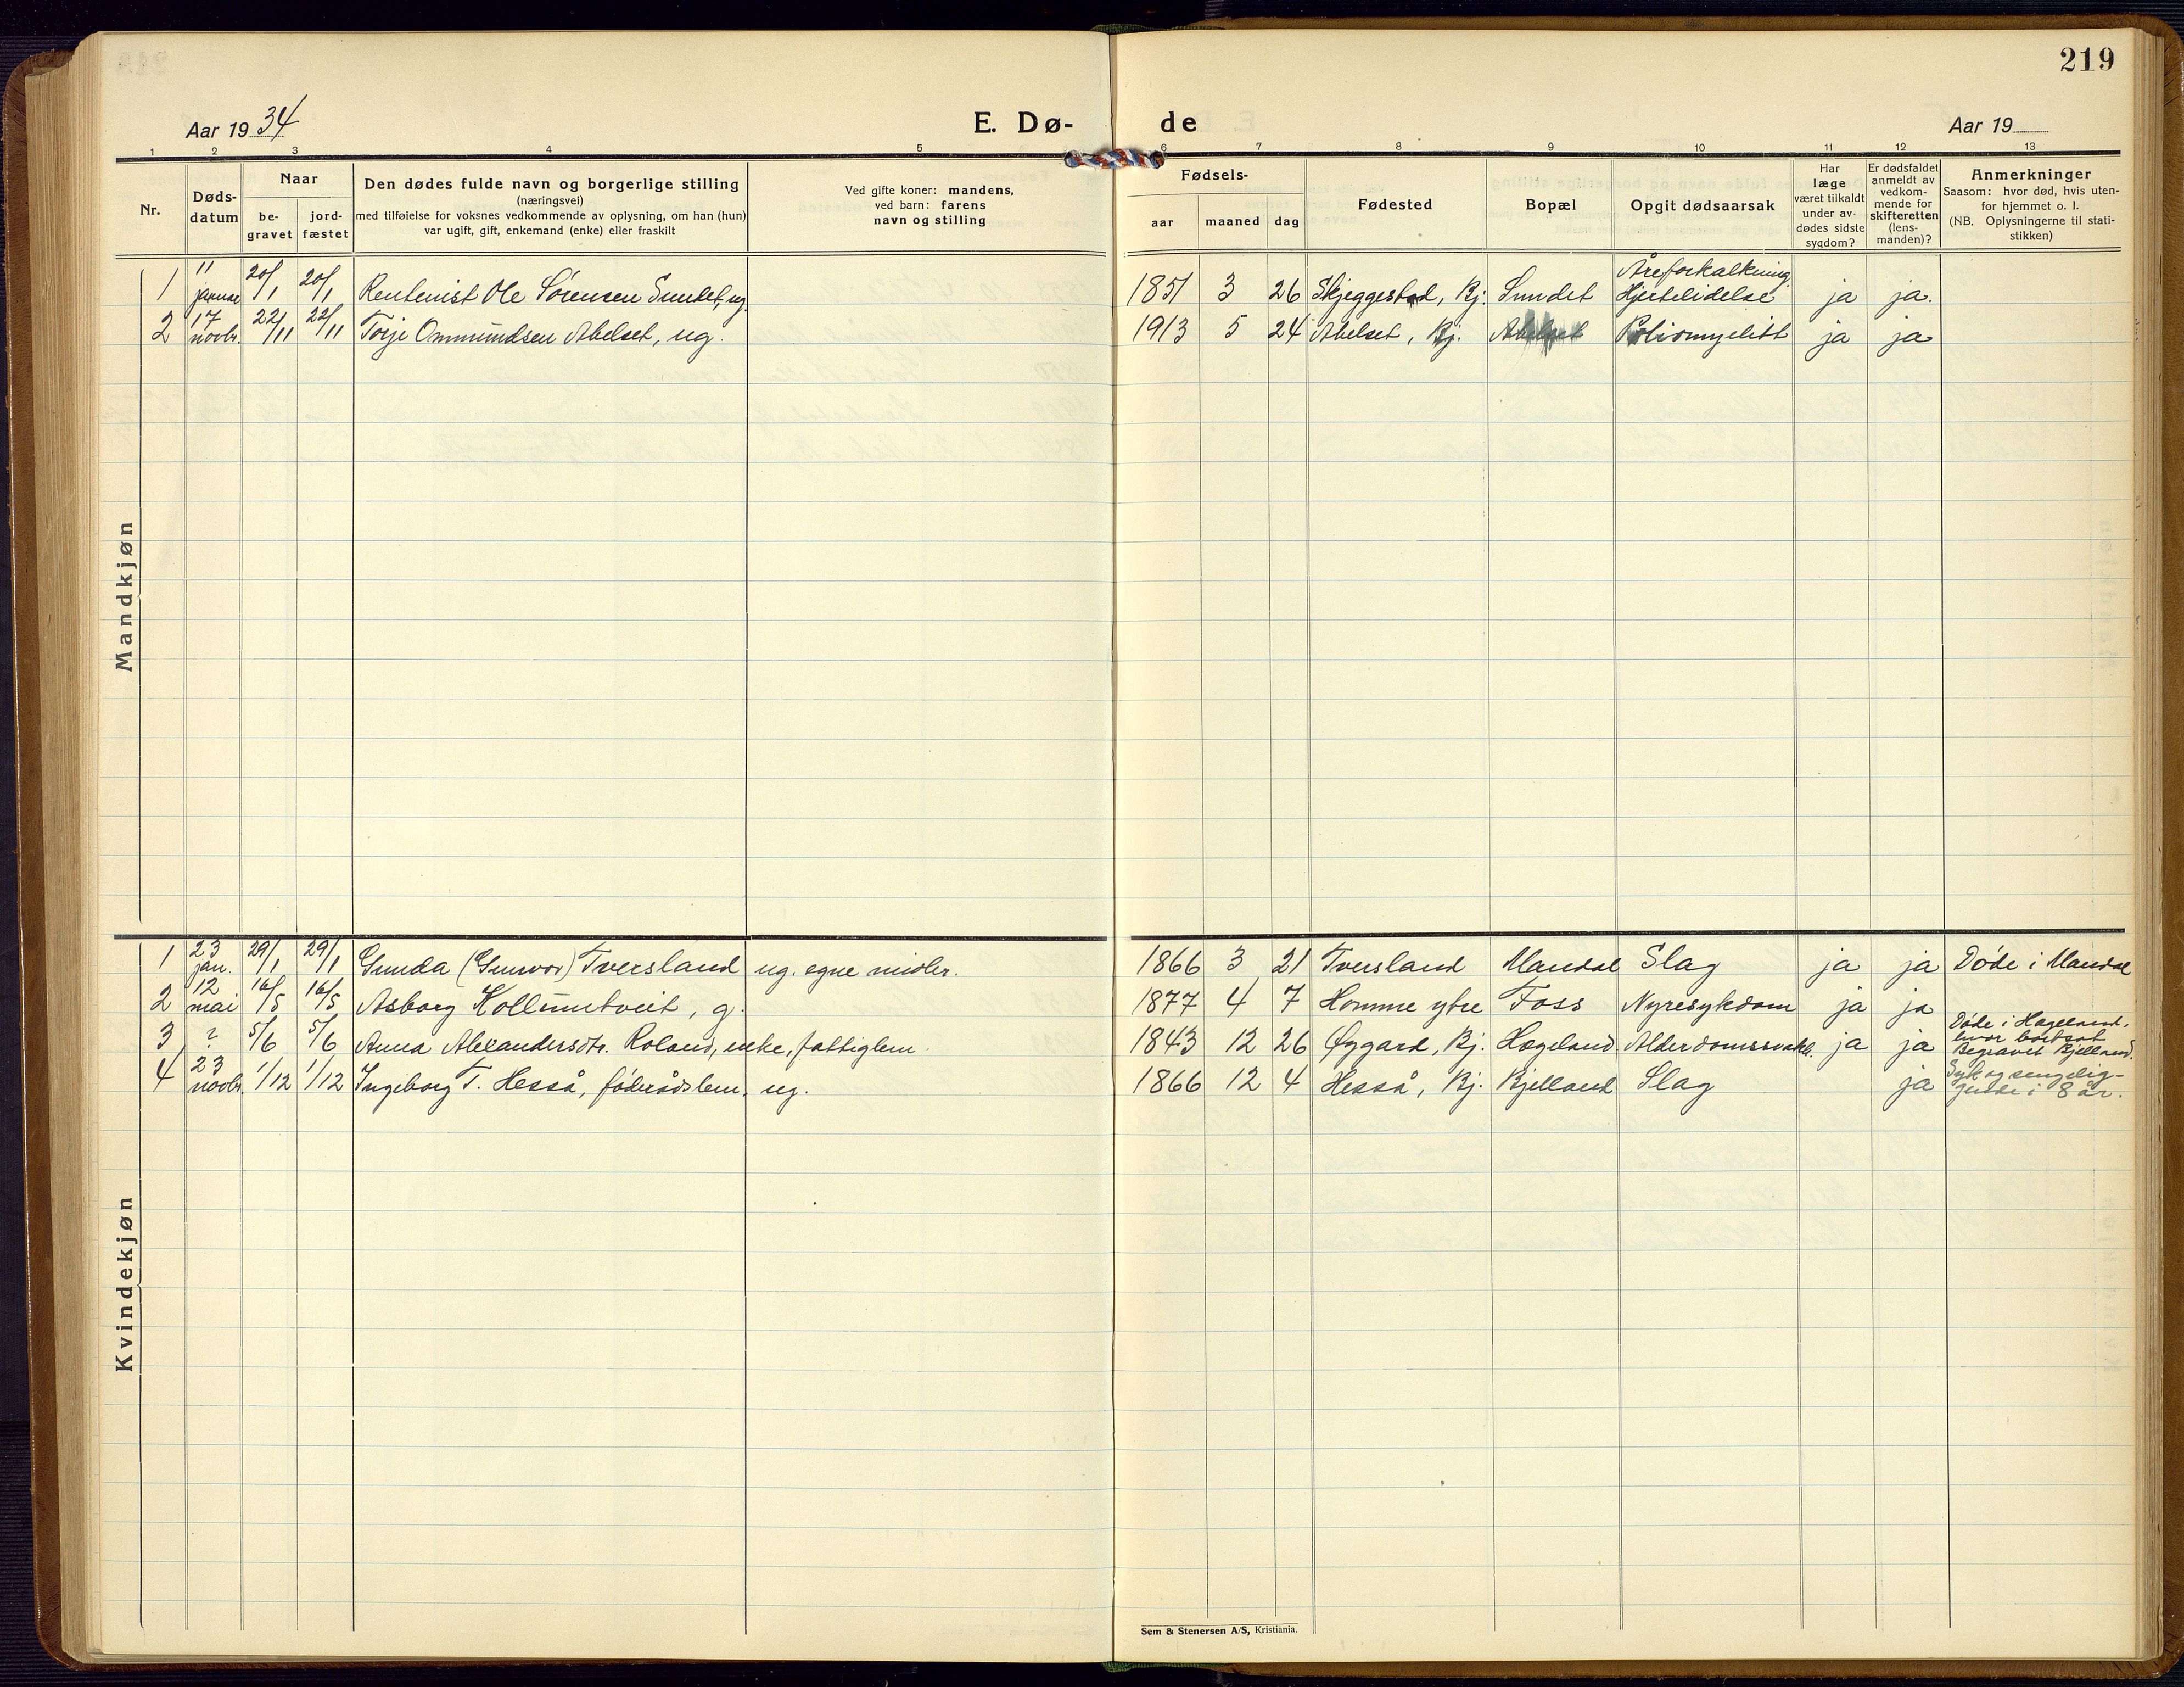 219
Aar 19 34
E. Dø-
de
Aar 19
1 2 3 4 5 6 7 8 9 10 11 12 13
Nr.
Døds-
datum
Naar
be-
gravet
jord-
fæstet
Den dødes fulde navn og borgerlige stilling
(næringsvei)
med tilføielse for voksnes vedkommende av oplysning, om han (hun)
var ugift, gift, enkemand (enke) eller fraskilt
Ved gifte koner: mandens,
ved barn: farens
navn og stilling
Fødsels-
aar maaned dag
Fødested
Bopæl
Opgit dødsaarsak
Har
læge
været tilkaldt
under av-
dødes sidste
sygdom?
Er dødsfaldet
anmeldt av
vedkom-
mende for
skifteretten
(lens-
manden)?
Anmerkninger
Saasom: hvor død, hvis uten-
for hjemmet o. l.
(NB. Oplysningerne til stati-
stikken)
Mandkjøn
1 11 januar 20/1 20/1 Rentenist Ole Sørensen Sundet, ug. 1851 3 26 Skjeggestad, Bj. Sundet Åreforkalkning. Hjertelidelse ja ja.
2 17 novbr. 22/11 22/11 Torje Ommundsen Abelset, ug. 1913 5 24 Abelset, Bj. Abelset Poliomyelitt ja ja
Kvindekjøn
1 23 jan. 29/1 29/1 Gunda (Gunvor) Tversland ug. egne midler. 1866 3 21 Tversland Mandal Slag ja ja Døde i Mandal
2 12 mai 16/5 16/5 Asborg Kolluntveit, g. 1877 4 7 Homme ytre Foss Nyresykdom ja ja
3 ? 5/6 5/6 Anna Alexandersdtr. Roland, enke, fattiglem. 1843 12 26 Øygard, Bj. Hægeland Alderdomssvakh. ja ja Døde i Hægeland, hvor bortsat Begravet Bjelland.
4 23 novbr. 1/12 1/12 Ingeborg T. Hesså, føderådslem, ug. 1866 12 4 Hesså, Bj. Bjelland Slag ja Syk og sengelig-
gende i 8 år.
Sem & Stenersen A/S, Kristiania.